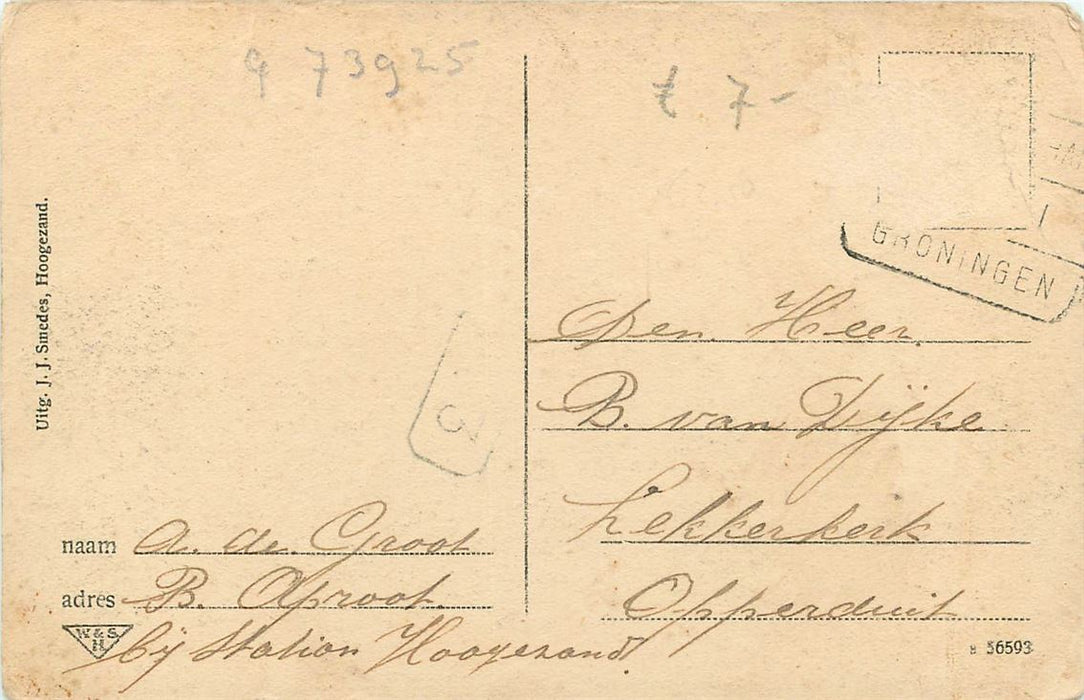 973925
t 7-
GRONINGEN
Den Heer.
B. van Dijke
Lekkerkerk
Opperduit
Uitg. J. J. Smedes, Hoogezand.
naam A. de Groot
adres B. Aproot.
bij Station Hoogezand
W & S
H
B 56593